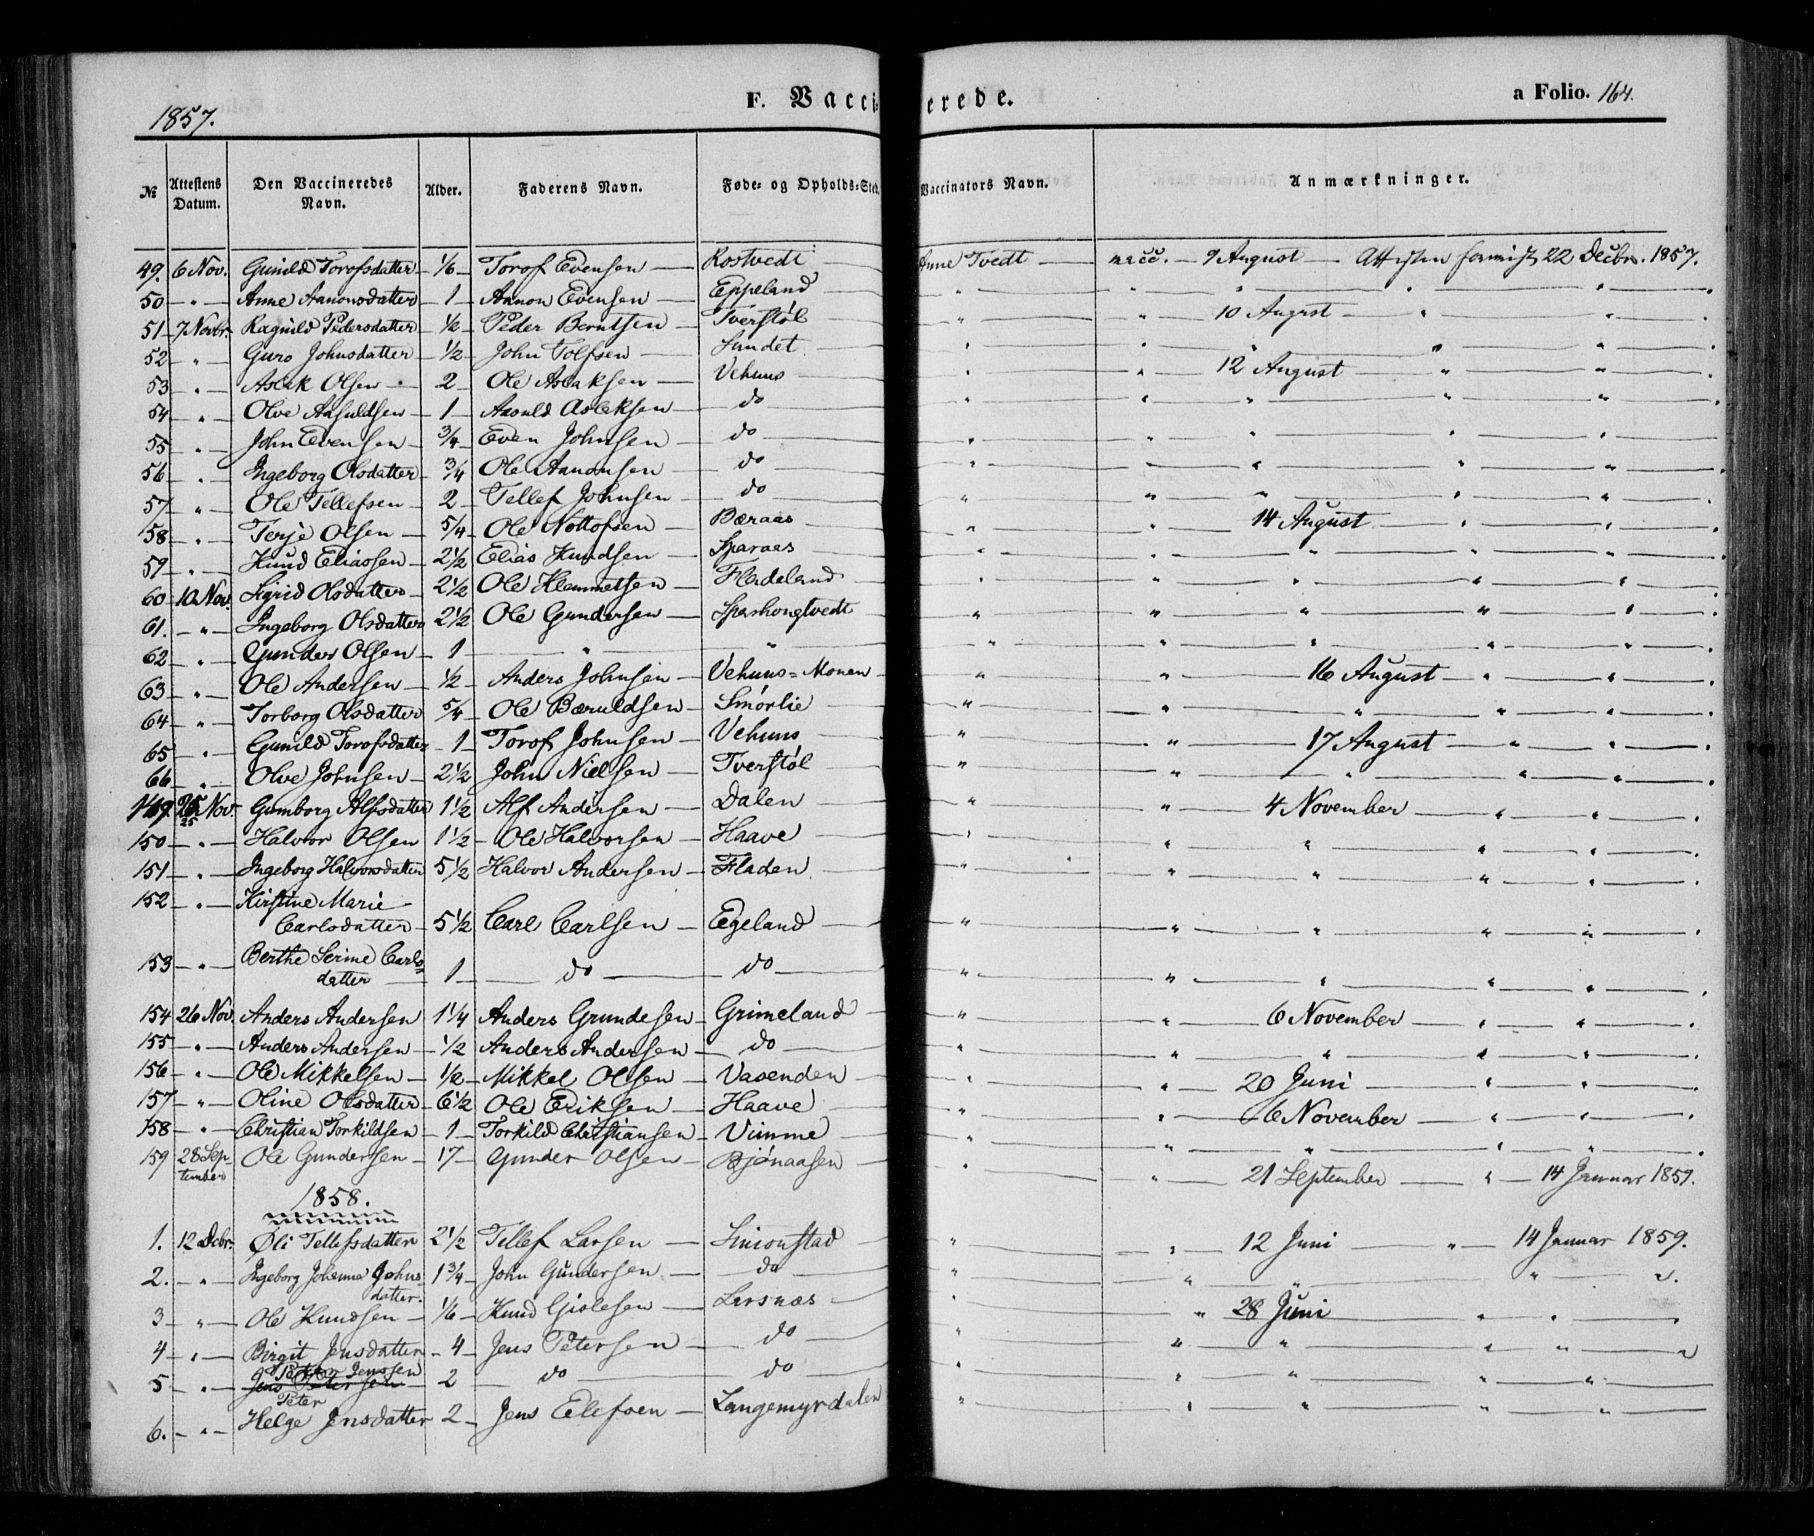 1857.
F. Vaccinerede.
a Folio. 164.
№ Attestens Datum. Den Vaccineredes Navn. Alder. Faderens Navn. Føde- og Opholds-Sted. Vaccinators Navn. Anmærkninger.
49. 6 Nov. Gunild Torofsdatter 1/6 Torof Evensen Rostvedt Anne Tvedt vacc. 9 August Attesten 22 Decbr. 1857.
50 " Anne Aanonsdatter 1 Aanon Evensen Eppeland " " " " "
51 7 Novbr. Ragnild Pedersdatter 1/2 Peder Berntsen Tverstøl " " 10 August " "
52 " Guro Johnsdatter 1/2 John Tolfsen Sundet " " " " "
53 " Aslak Olsen 2 Ole Aslaksen Vehuus " " 12 August " "
54 " Olve Aasuldsen 1 Aasuld Aslaksen do " " " " "
55 " John Evensen 3/4 Even Johnsen do " " " " "
56 " Ingeborg Olsdatter 3/4 Ole Aanonsen do " " " " "
57 " Ole Tellefsen 2 Tellef Johnsen do " " " " "
58 " Terje Olsen 5/4 Ole Nottofsen Bæraas " " 14 August " "
59 " Knud Eliassen 2 1/2 Elias Knudsen Sparaas " " " " "
60 10 Nov. Sigrid Olsdatter 2 1/2 Ole Klemmetsen Fladeland " " " " "
61. " Ingeborg Olsdatter 2 1/2 Ole Gundersen " " " " "
62 " Gunder Olsen 1 " " " " " " "
63 " Ole Andersen 1/2 Anders Johnsen Vehuus=Monen " " 16 August " "
64 " Torborg Olsdatter 5/4 Ole Bæruldsen Smørlie " " " " "
65 " Gunild Torofsdatter 1 Torof Johnsen Vehuus " " 17 August " "
66 " Olve Johnsen 2 1/2 John Nielsen Tverstøl " " " " "
149 25 Nov. Gumborg Alfsdatter 1 1/2 Alf Andersen Dalen " " 4 November " "
25
150 " Halvor Olsen 1 1/2 Ole Halvorsen Haave " " " " "
151 " Ingeborg Halvorsdatter 5 1/2 Halvor Andersen Fladen " " " " "
152 " Kirstine Marie
Carlsdatter 5 1/2 Carl Carlsen Egeland " " " " "
153 " Berthe Serine Carls-
datter 1 do do " " " " "
154 26 Nov. Anders Andersen 1 1/4 Anders Grundesen Grimeland " " 6 November " "
155 " Anders Andersen 1/2 Anders Andersen do " " " " "
156 " Ole Mikkelsen 1/2 Mikkel Olsen Vasenden " " 20 Juni " "
157 " Oline Olsdatter 6 1/2 Ole Eriksen Haave " " 6 November " "
158 " Christian Torkildsen 1 Torkild Christiansen Vimme " " " " "
159 28 Sep- Ole Gundersen 17 Gunder Olsen Bjønaasen " " 21 September " 14 Januar 1859.
tember
1858.
1. 12 Dcbr. Øli Tellefsdatter 2 1/2 Tellef Larsen Simonstad " " 12 Juni " 14 Januar 1859.
2. " Ingeborg Johanne Johns 1 3/4 John Gundersen do " " " " "
datter.
3 " Ole Knudsen 1/6 Knud Gislesen Larsnæs " " 28 Juni " "
4 " Birgit Jensdatter 4 Jens Petersen do " " " " "
Jenssen
5 " Jens Petersen 2 do do " " " " "
Peter
6. " Helge Jensdatter 2 Jens Elefsen Langemyrdalen " " " " "